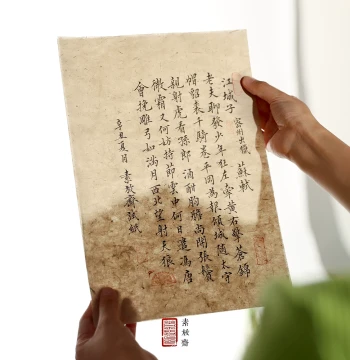 江城子 密州出獵 蘇軾
老夫聊發少年狂左牽黃右擎蒼錦
帽貂裘千騎卷平岡為報傾城隨太守
親射虎看孫郎 酒酣胸膽尚開張鬢
微霜又何妨持節雲中何日遣馮唐
會挽雕弓如滿月西北望射天狼
辛丑夏月 素敘齋試紙
素敘齋